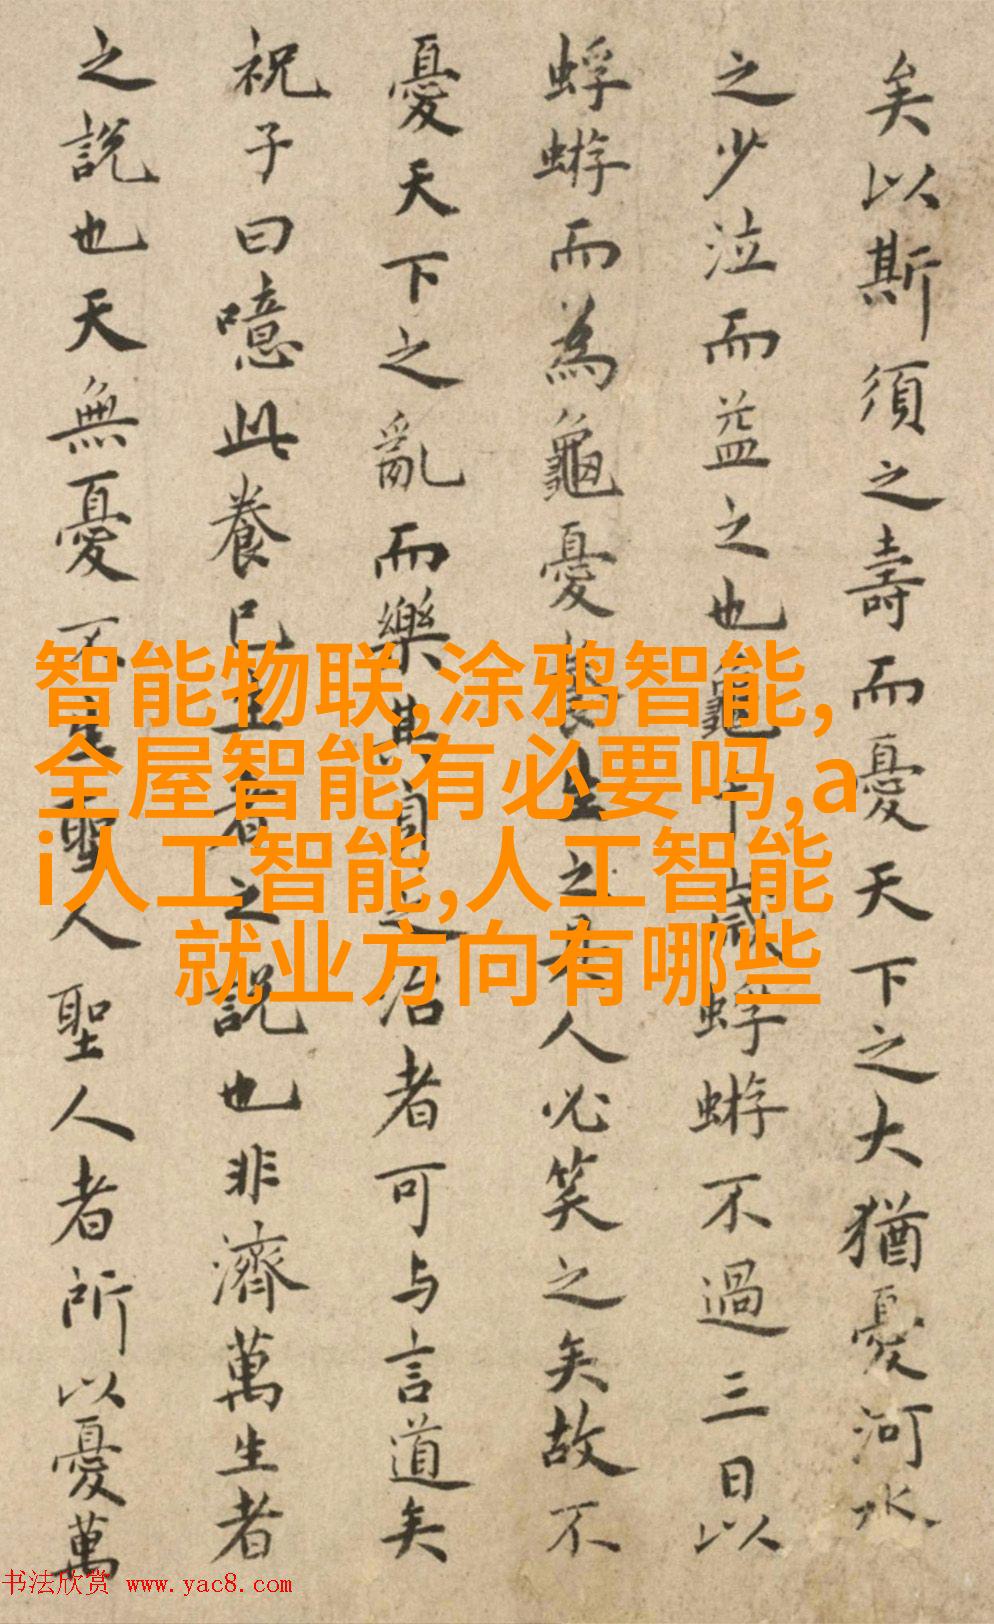 矣以斯須之壽而憂天下之大猶憂河水
之少泣而益之也龜千歲蜉蝣不過三日以
蜉蝣而為龜憂養生之具人必笑之矣故不
憂天下之亂而樂其身之治者可与言道矣
祝子曰噫此養己生者之說也非濟萬生者
之說也天無憂不生聖人聖人者所以憂萬
智能物联,涂鸦智能,
全屋智能有必要吗,a
i人工智能,人工智能
就业方向有哪些
书法欣赏 www.yac8.com